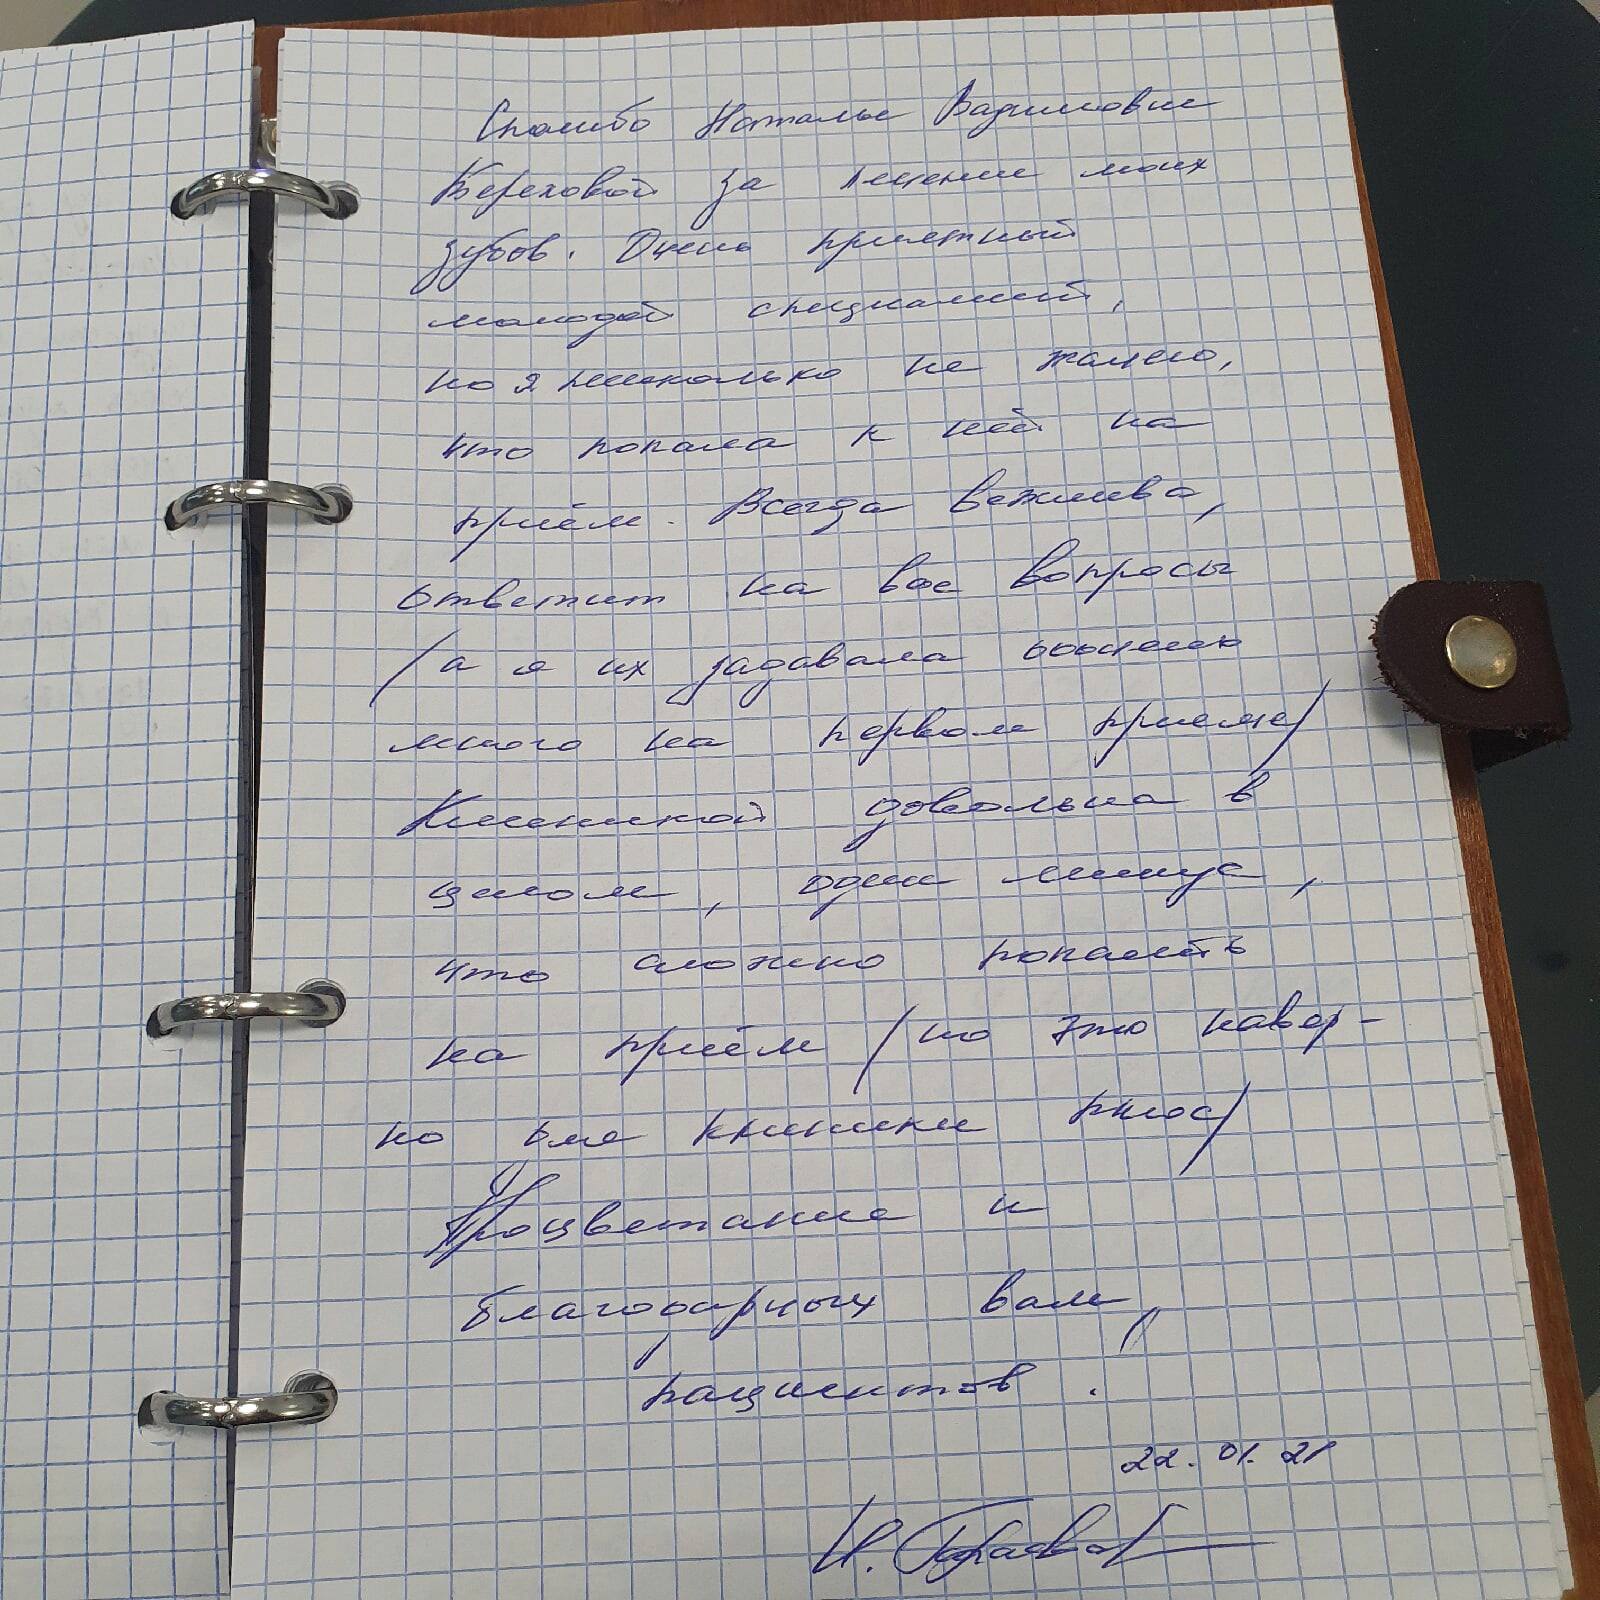 Спасибо Наталье Вадимовне
Тереховой за лечение моих
зубов. Очень приятный
молодой специалист,
но я нисколько не жалею,
что попала к ней на
приём. Всегда вежлива,
ответит на все вопросы
/а я их задавала
много на первом приеме/
Клиникой довольна в
целом, один минус,
что сложно попасть
на приём /но это навер-
но для клиники плюс/
Процветание и
благодарных вам,
пациентов.
22.01.21
И.